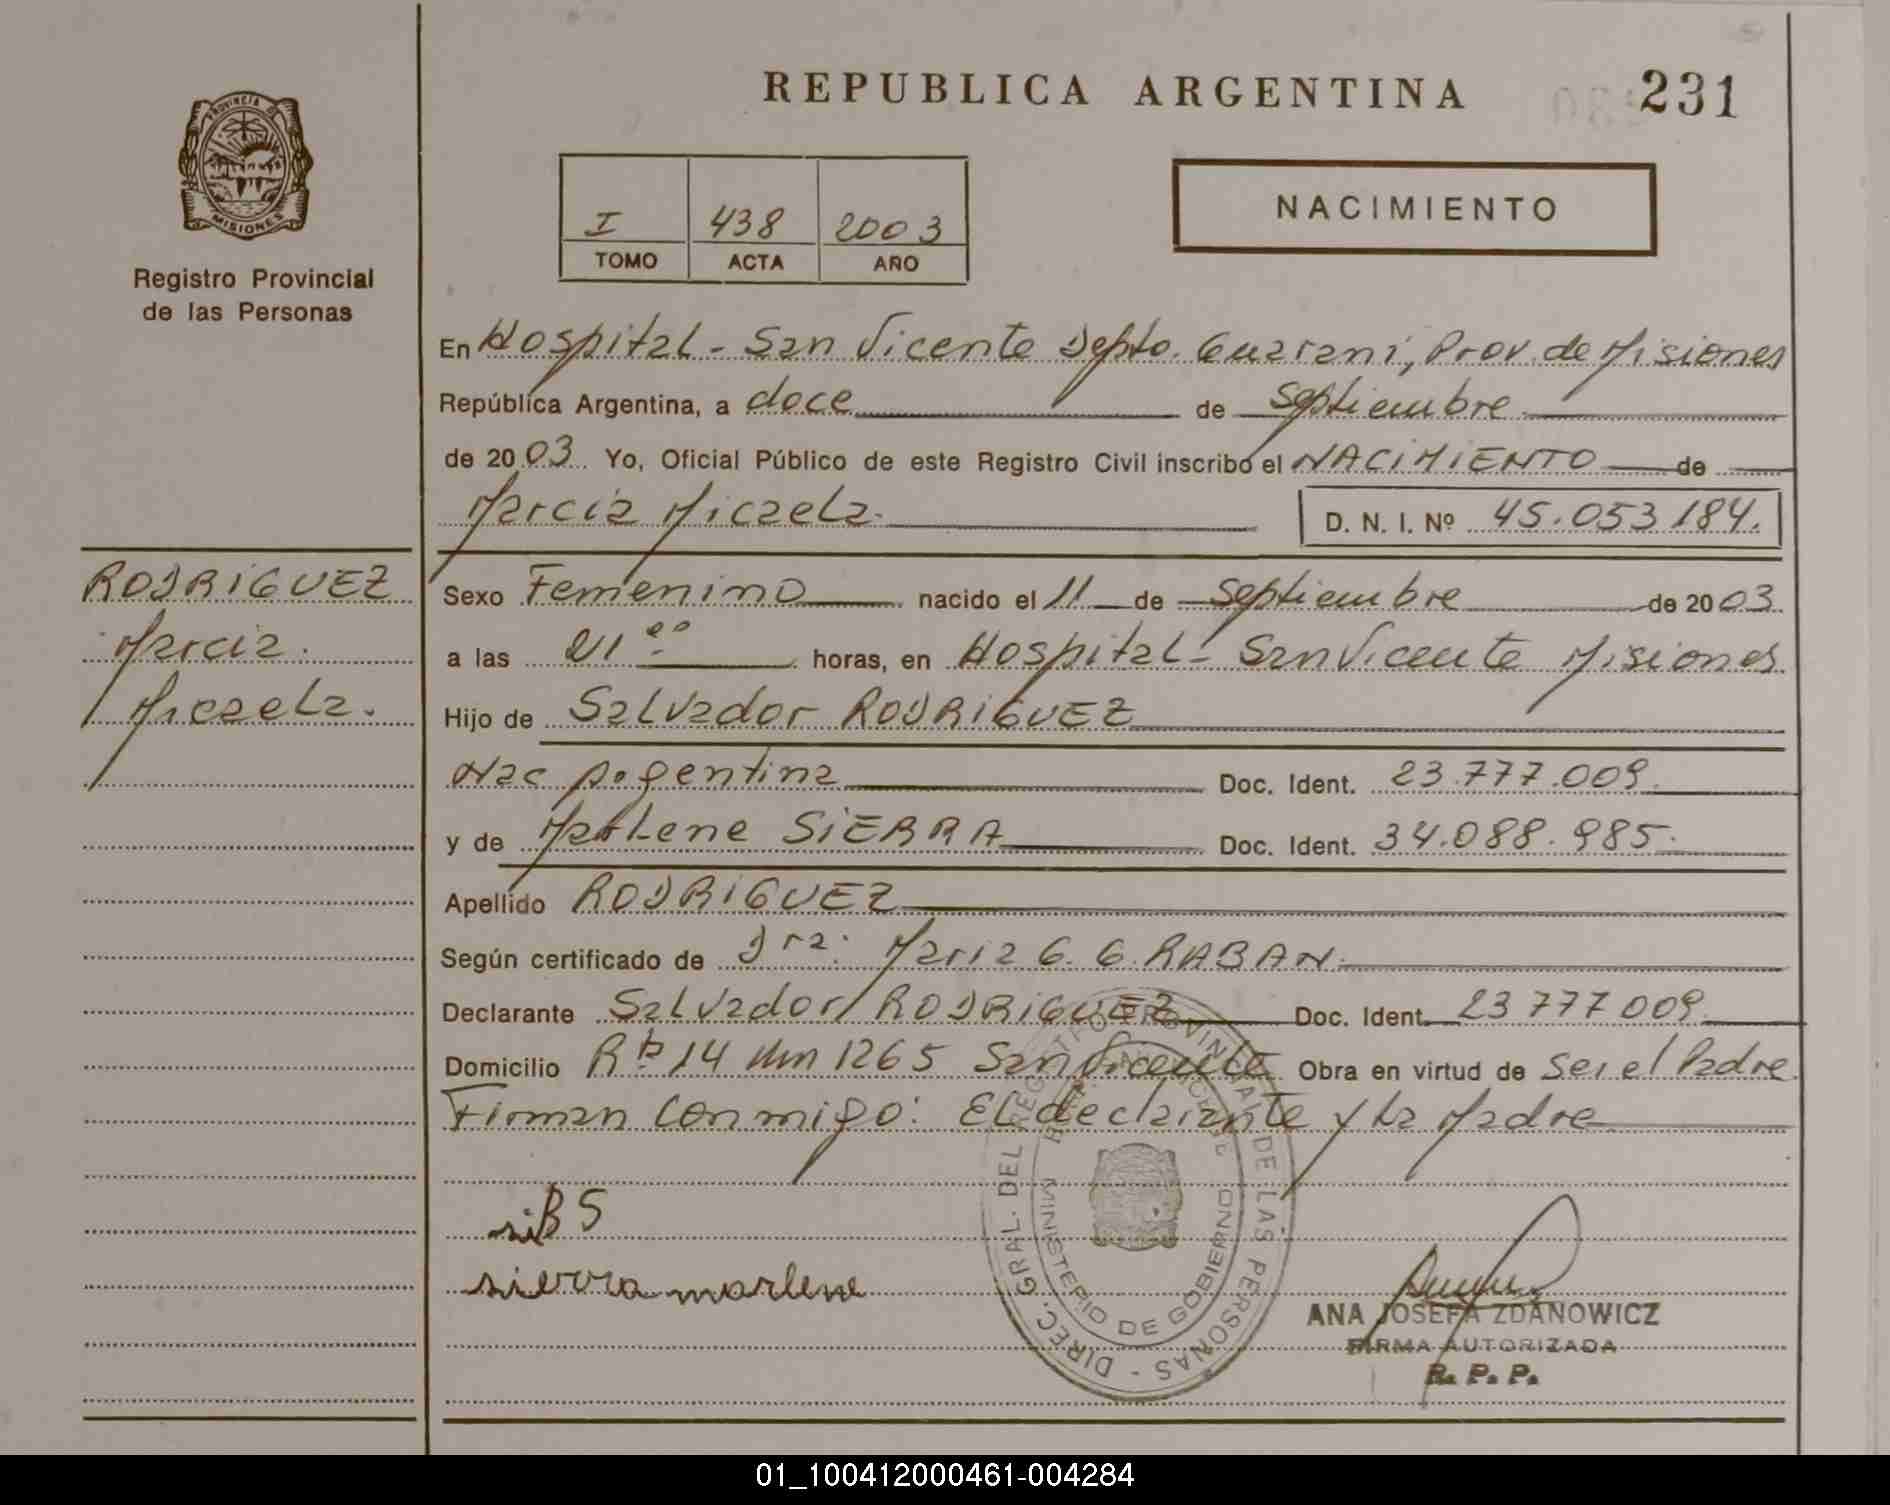 REPUBLICA ARGENTINA
231
PROVINCIA DE
MISIONES
Registro Provincial
de las Personas
I 438 2003
TOMO ACTA AÑO
NACIMIENTO
En Hospital - San Vicente Depto. Guarani, Prov. de Misiones
República Argentina, a doce de Septiembre
de 2003 Yo, Oficial Público de este Registro Civil inscribo el NACIMIENTO de
Marcia Micaela. D. N. I. Nº 45.053 184.
RODRIGUEZ
Marcia.
Micaela.
Sexo Femenino nacido el 11 de Septiembre de 2003
a las 21 00 horas, en Hospital - San Vicente Misiones
Hijo de Salvador RODRIGUEZ
Nac Argentina Doc. Ident. 23.777.009.
y de Marlene SIERRA Doc. Ident. 34.088.985.
Apellido RODRIGUEZ
Según certificado de Dra. Maria G. G. RABAN.
Declarante Salvador RODRIGUEZ Doc. Ident. 23 777 009.
Domicilio Rta 14 Km 1265 San Vicente Obra en virtud de Ser el Padre
Firman Conmigo: El declarante y La Madre
DIREC. GRAL. DEL REGISTRO PROVINCIAL DE LAS PERSONAS -
MINISTERIO DE GOBIERNO
sierra marlene
ANA JOSEFA ZDANOWICZ
FIRMA AUTORIZADA
R. P. P.
01_100412000461-004284